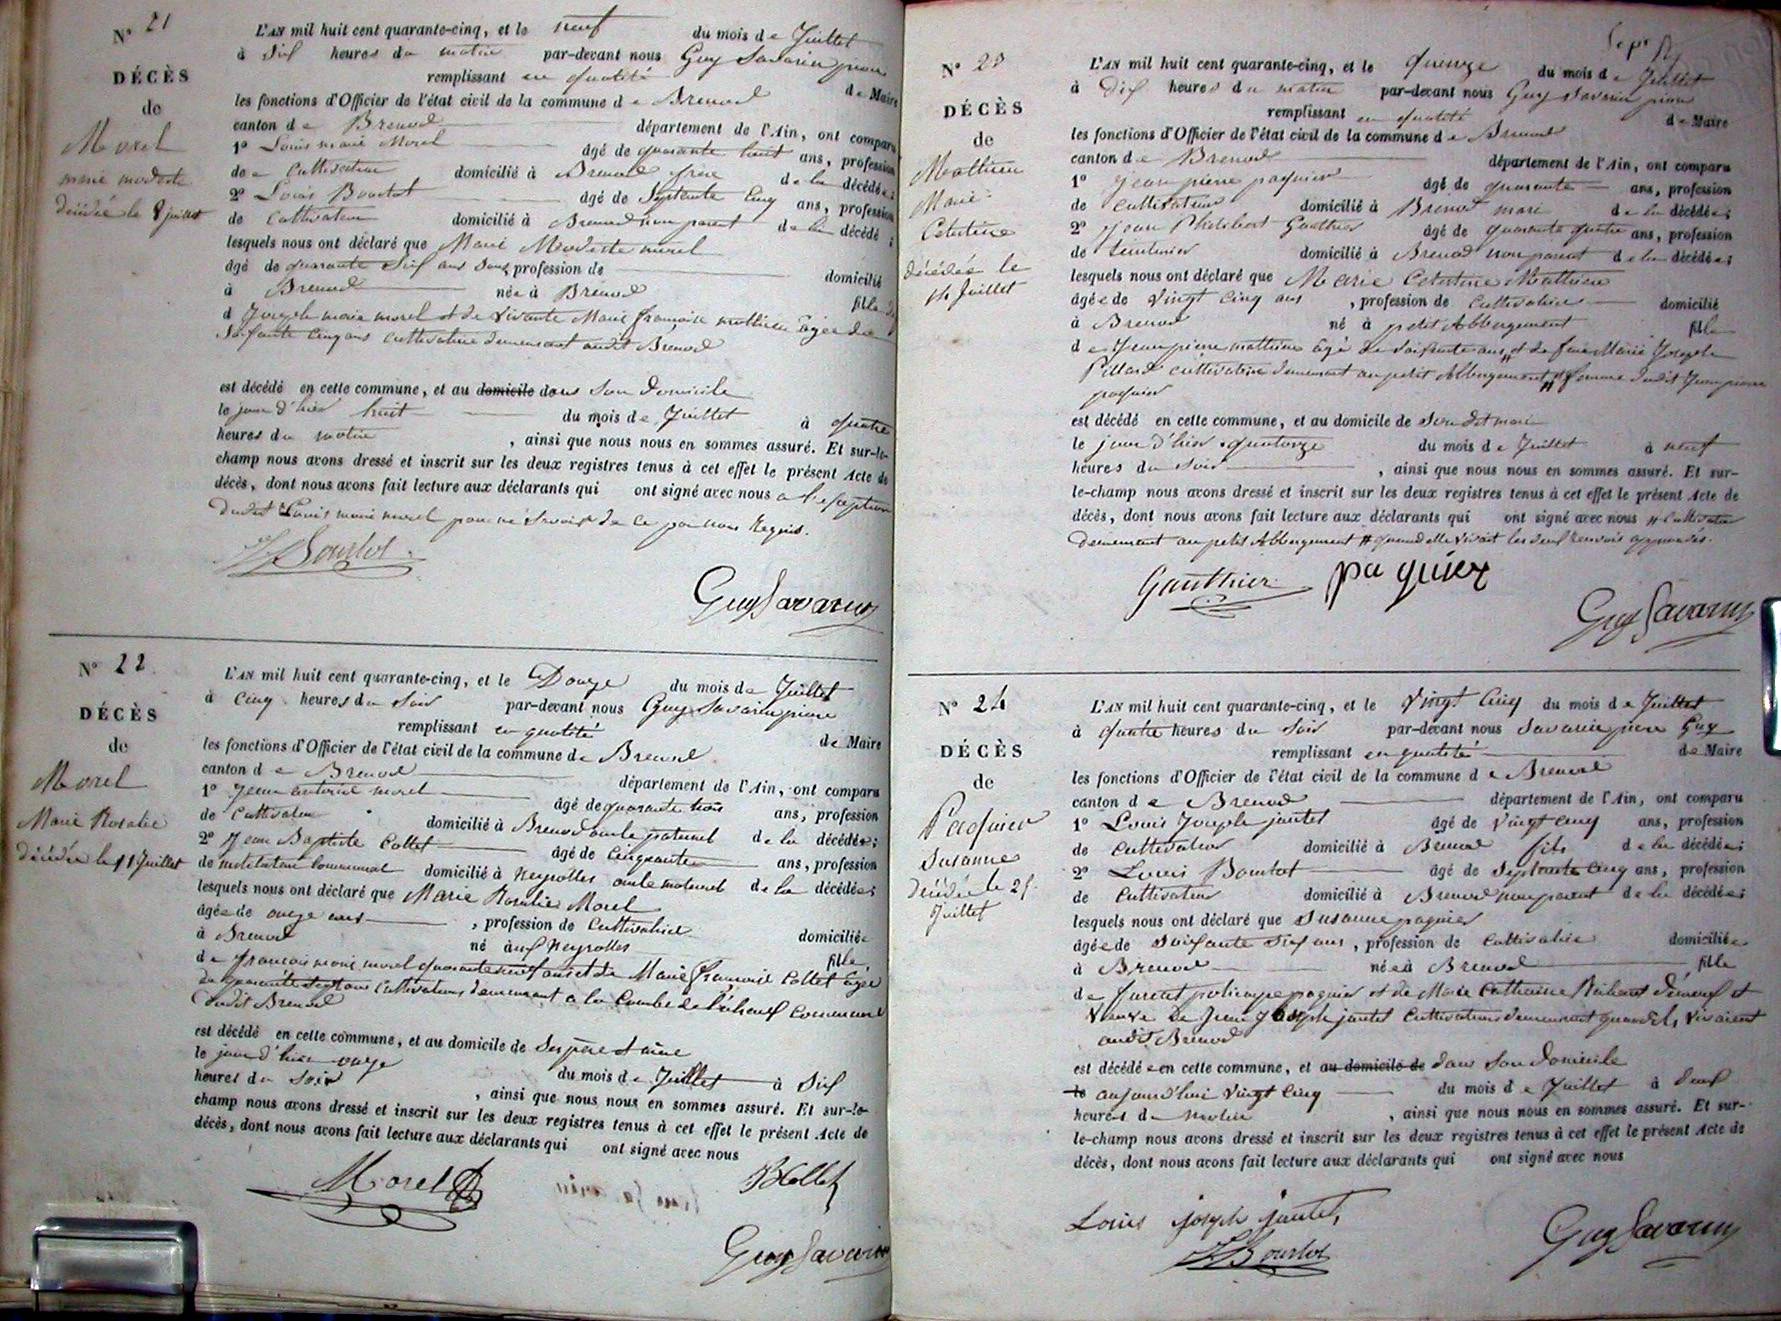 N° 21
DÉCÈS
de
Morel
marie modeste
décédée le 8 juillet
L'AN mil huit cent quarante-cinq, et le neuf du mois de Juillet
à dix heures du matin par-devant nous Guy Savarin pierre
remplissant en qualité de Maire
les fonctions d'Officier de l'état civil de la commune de Brenod
canton de Brenod département de l'Ain, ont comparu
1° Louis marie Morel âgé de quarante huit ans, profession
de Cultivateur domicilié à Brenod frère de la décédée;
2° Louis Bourtot âgé de Septante Cinq ans, profession
de Cultivateur domicilié à Brenod non parent de la décédé ;
lesquels nous ont déclaré que Marie Modeste morel
âgé de quarante Six ans Sans profession de domicilié
à Brenod née à Brenod fille de
d Joseph marie morel et de vivante Marie françoise mathieu âgée de
Soixante Cinq ans cultivatrice demeurant audit Brenod
est décédé en cette commune, et au domicile dans Son Domicile
le jour d'hier huit du mois de Juillet à quatre
heures du matin , ainsi que nous nous en sommes assuré. Et sur-le-
champ nous avons dressé et inscrit sur les deux registres tenus à cet effet le présent Acte de
décès, dont nous avons fait lecture aux déclarants qui ont signé avec nous a l'exeption
dudit Louis marie morel pour ne Savoir de Ce par nous Requis.
Bourtot
Guy Savarin
N° 22
DÉCÈS
de
Morel
Marie Rosalie
décédée le 11 Juillet
L'AN mil huit cent quarante-cinq, et le Douze du mois de Juillet
à Cinq heures du Soir par-devant nous Guy Savarin pierre
remplissant en qualité de Maire
les fonctions d'Officier de l'état civil de la commune de Brenod
canton de Brenod département de l'Ain, ont comparu
1° Jean antoine morel âgé de quarante trois ans, profession
de Cultivateur domicilié à Brenod oncle paternel de la décédée;
2° Jean Baptiste Collet âgé de Cinquante ans, profession
de instituteur Communal domicilié à Neyrolles oncle maternel de la décédée;
lesquels nous ont déclaré que Marie Rosalie Morel
âgée de onze ans , profession de Cultivatrice domiciliée
à Brenod né aux Neyrolles fille
de françois marie morel quarante neuf ans et de Marie françoise Collet âgée
de quarante Sept ans Cultivateurs demeurant a la Combe de Commune
dudit Brenod
est décédé en cette commune, et au domicile de Ses père et mère
le jour d'hier onze du mois de Juillet à Six
heures du Soir , ainsi que nous nous en sommes assuré. Et sur-le-
champ nous avons dressé et inscrit sur les deux registres tenus à cet effet le présent Acte de
décès, dont nous avons fait lecture aux déclarants qui ont signé avec nous
Morel
BCollet
Guy Savarin
N° 23
DÉCÈS
de
Mathieu
Marie
Celestine
décédée le
14 Juillet
L'AN mil huit cent quarante-cinq, et le quinze du mois de Juillet
à dix heures du matin par-devant nous Guy Savarin pierre
remplissant en qualité de Maire
les fonctions d'Officier de l'état civil de la commune de Brenod
canton de Brenod département de l'Ain, ont comparu
1° Jean pierre paquier âgé de quarante ans, profession
de Cultivateur domicilié à Brenod mari de la décédée;
2° Jean Philibert Gauthier âgé de quarante quatre ans, profession
de domicilié à Brenod non parent de la décédée;
lesquels nous ont déclaré que Marie Celestine Mathieu
âgée de vingt Cinq ans , profession de Cultivatrice domicilié
à Brenod né à petit Abbergement fille
de Jean pierre mathieu âgé de Soixante ans, # et de feue Marie Josephe
Pillard cultivatrice demeurant au petit Abbergement # femme dudit Jean pierre
paquier
est décédé en cette commune, et au domicile de Son dit mari
le jour d'hier quatorze du mois de Juillet à neuf
heures du Soir , ainsi que nous nous en sommes assuré. Et sur-
le-champ nous avons dressé et inscrit sur les deux registres tenus à cet effet le présent Acte de
décès, dont nous avons fait lecture aux déclarants qui ont signé avec nous # Cultivateur
demeurant au petit Abbergement # quand elle vivait les deux Renvois approuvés.
Gauthier paquier
Guy Savarin
N° 24
DÉCÈS
de
Pacquier
Susanne
Décédée le 25
Juillet
L'AN mil huit cent quarante-cinq, et le vingt Cinq du mois de Juillet
à quatre heures du Soir par-devant nous Savarin pierre Guy
remplissant en qualité de Maire
les fonctions d'Officier de l'état civil de la commune de Brenod
canton de Brenod département de l'Ain, ont comparu
1° Louis Joseph jantet âgé de vingt Cinq ans, profession
de Cultivateur domicilié à Brenod fils de la décédée;
2° Louis Bourtot âgé de Septante Cinq ans, profession
de Cultivateur domicilié à Brenod non parent de la décédée;
lesquels nous ont déclaré que Susanne paquier
âgée de Soixante Six ans , profession de Cultivatrice domiciliée
à Brenod née à Brenod fille
de policarpe paquier et de Marie Catherine décédés et
Veuve de Jean Joseph jantet Cultivateurs demeurant quand ils vivaient
audit Brenod
est décédée en cette commune, et au domicile de dans Son Domicile
le aujourd'hui vingt Cinq du mois de Juillet à deux
heures du matin , ainsi que nous nous en sommes assuré. Et sur-
le-champ nous avons dressé et inscrit sur les deux registres tenus à cet effet le présent Acte de
décès, dont nous avons fait lecture aux déclarants qui ont signé avec nous
Louis joseph jantet
Bourtot
Guy Savarin